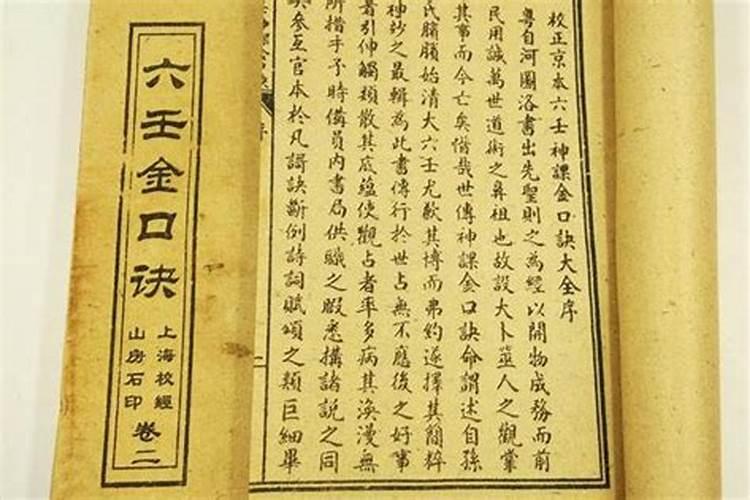 六壬金口诀
上海校經
山房石印
卷二
校正京本六壬神課金口訣大全序
粤自河圖洛書出先聖則之為經以開物成務而前
民用誠萬世道術之鼻祖也故設大卜筮人之觀掌
其事而今亡矣惜哉世傳神課金口訣命謂述自孫
氏臏臏始清大六壬尤歉其博而弗約遂擇其簡粹
神妙之最輯為此書傳行於世占無不應後之好事
者引伸觸類散其底蘊使觀占者率多病其渙漫無
所措手予時備員内書局供職之暇悉搆諸說之同
參互官本於凡謌訣斷例詩詞賦頌之類巨細畢